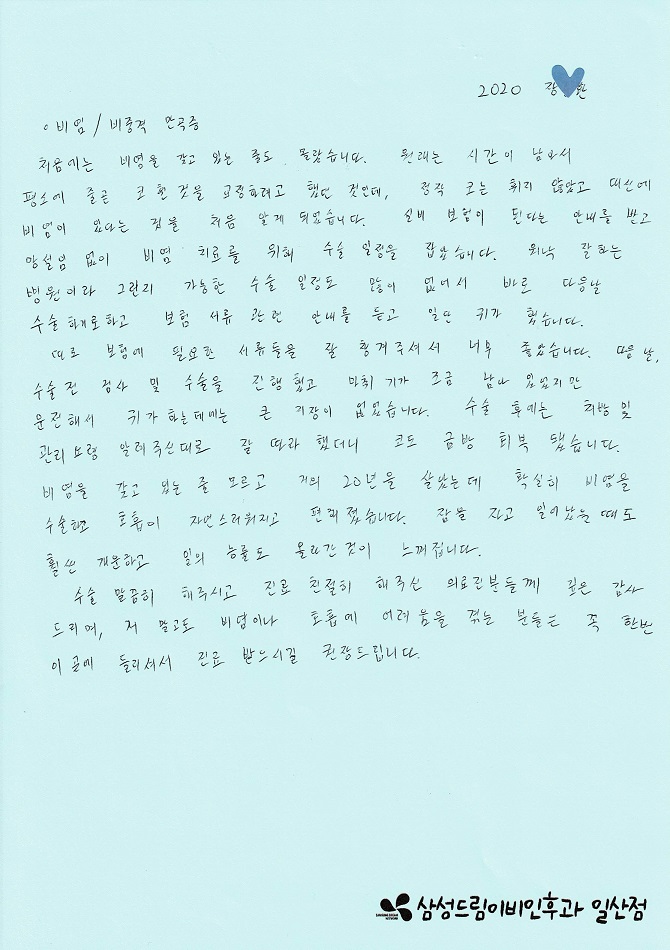 2020 장 환
· 비염 / 비중격 만곡증
처음에는 비염을 갖고 있는 줄도 몰랐습니다. 원래는 시간이 남아서
평소에 줄곧 코 휜 것을 교정하려고 했던 것인데, 정작 코는 휘지 않았고 대신에
비염이 있다는 점을 처음 알게 되었습니다. 실비 보험이 된다는 안내를 받고
망설임 없이 비염 치료를 위해 수술 일정을 잡았습니다. 워낙 잘하는
병원이라 그런지 가능한 수술 일정도 많이 없어서 바로 다음날
수술하기로하고 보험 서류 관련 안내를 듣고 일단 귀가 했습니다.
따로 보험에 필요한 서류들을 잘 챙겨주셔서 너무 좋았습니다. 다음 날,
수술 전 검사 및 수술을 진행했고 마취 기가 조금 남아 있었지만
운전해서 귀가 하는데에는 큰 지장이 없었습니다. 수술 후에는 처방 및
관리 요령 알려주신대로 잘 따라 했더니 코도 금방 회복 됐습니다.
비염을 갖고 있는 줄 모르고 거의 20년을 살았는데 확실히 비염을
수술하고 호흡이 자연스러워지고 편해졌습니다. 잠을 자고 일어났을때도
훨씬 개운하고 일의 능률도 올라간 것이 느껴집니다.
수술 말끔히 해주시고 진료 친절히 해주신 의료진분들께 깊은 감사
드리며, 저 말고도 비염이나 호흡에 어려움을 겪는 분들은 꼭 한번
이 곳에 들리셔서 진료 받으시길 권장드립니다.
삼성드림이비인후과 일산점